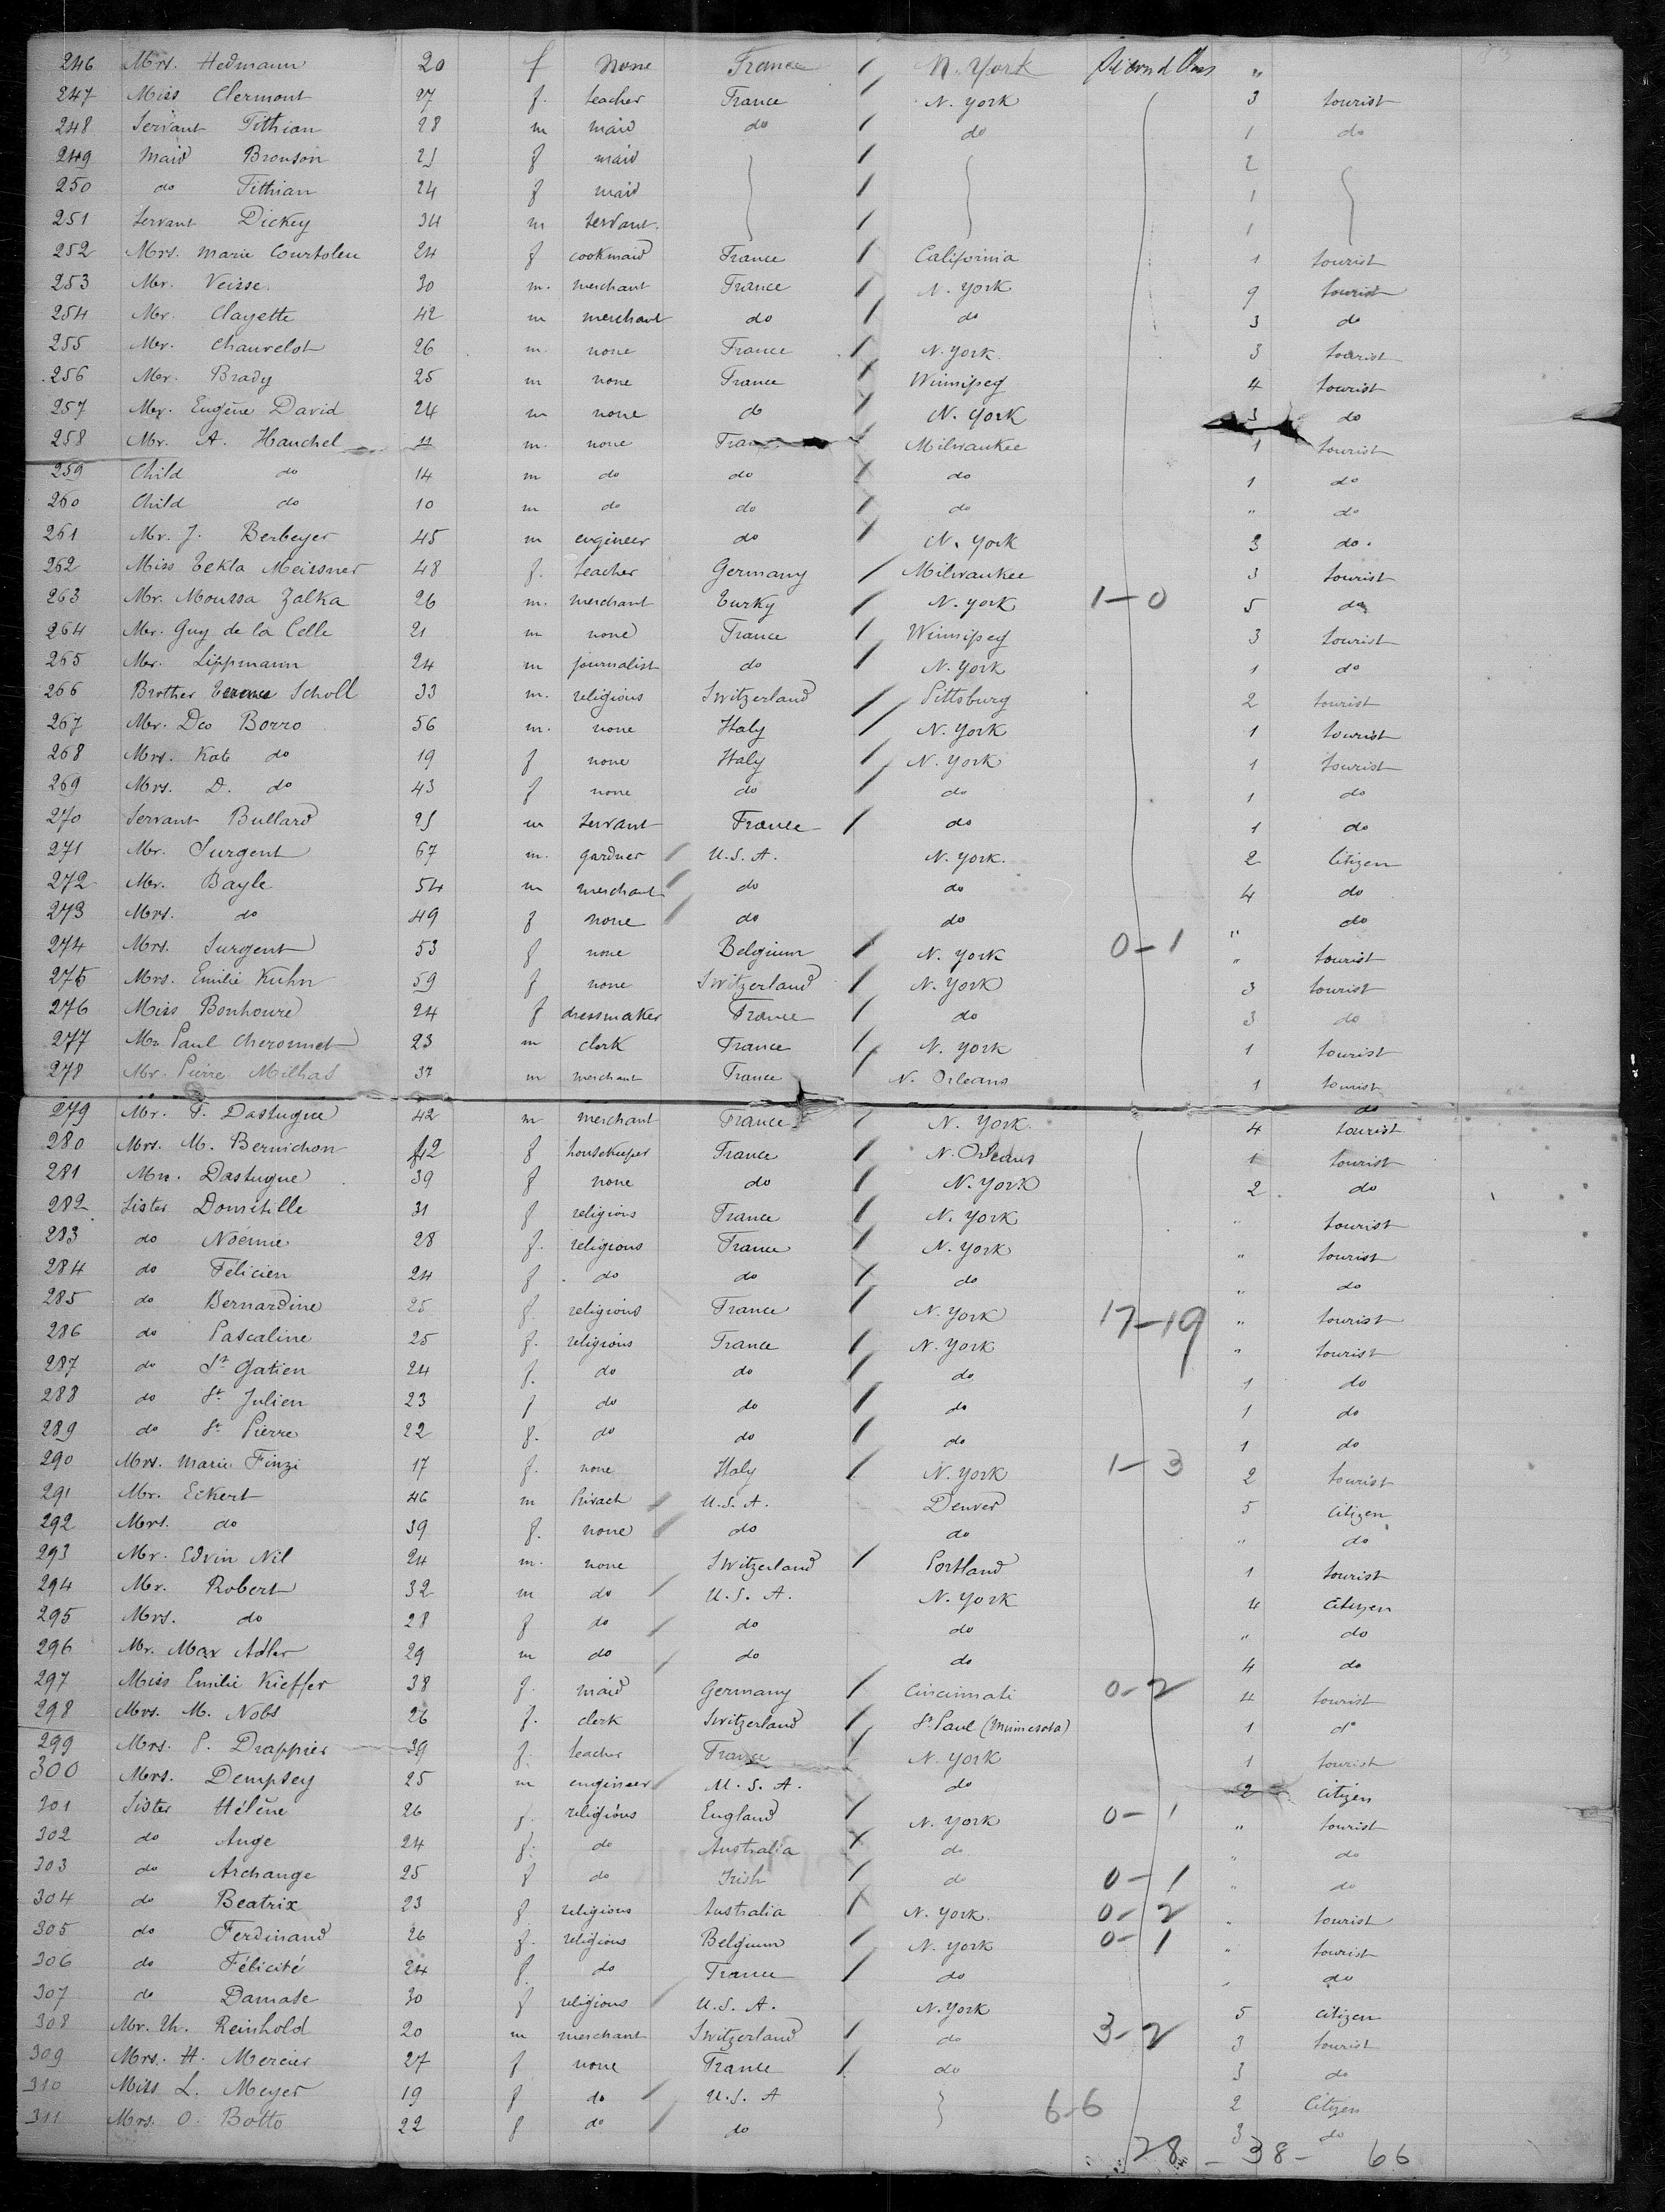 246 Mrs. Hedmann 20 f none France / N. York Second Class "
247 Miss Clermont 27 f. teacher France / N. York 3 tourist
248 Servant Tithian 28 m maid do / do 1 do
249 Maid Bronson 25 f maid / 2
250 do Tithian 24 f maid / 1
251 Servant Dickey 34 m servant. / 1
252 Mrs. Marie Courtoleu 24 f cookmaid France / California 1 tourist
253 Mr. Veisse. 30 m. merchant France / N. York 9 tourist
254 Mr. Clayette 42 m merchant do / do 3 do
255 Mr. Chauvelot 26 m. none France / N. York. 3 tourist
256 Mr. Brady 25 m none France / Winnipeg 4 tourist
257 Mr. Eugène David 24 m none do / N. York 3 do
258 Mr. A. Hauchel m. none / Milwaukee 1 tourist
259 Child do 14 m do do / do 1 do
260 Child do 10 m do do / do " do
261 Mr. J. Berbeyer 45 m engineer do / N. York 3 do.
262 Miss Tekla Meissner 48 f. teacher Germany / Milwaukee 3 tourist
263 Mr. Moussa Zalka 26 m. merchant Turky / N. York 1-0 5 do
264 Mr. Guy de la Celle 21 m none France / Winnipeg 3 tourist
265 Mr. Lippmann 24 m journalist do / N. York 1 do
266 Brother Scholl 33 m. religious Switzerland / Pittsburg 2 tourist
267 Mr. Deo Borro 56 m. none Italy / N. York 1 tourist
268 Mrs. Kate do 19 f none Italy / N. York 1 tourist
269 Mrs. D. do 43 f none do / do 1 do
270 Servant Bullard 25 m servant France / do 1 do
271 Mr. Surgent 67 m. gardner / U.S.A. N. York. 2 Citizen
272 Mr. Bayle 54 m merchant / do do 4 do
273 Mrs. do 49 f none / do do " do
274 Mrs. Surgent 53 f none Belgium / N. York 0-1 " tourist
275 Mrs. Emilie Kuhn 59 f none Switzerland / N. York 3 tourist
276 Miss Bonhoure 24 f dressmaker France / do 3 do
277 Mr. Paul Cheronnet 23 m clerk France / N. York 1 tourist
278 Mr. Pierre Milhas 37 m merchant France / N. Orleans 1 tourist
do
279 Mr. F. Dastugue 42 m merchant France / N. York. 4 tourist
280 Mrs. M. Bernichon 42 f housekeeper France / N. Orleans 1 tourist
281 Mrs. Dastugue 39 f none do / N. York 2 do
282 Sister Domitille 31 f religious France / N. York " tourist
283 do Noémie 28 f. religious France / N. York " tourist
284 do Félicien 24 f do do / do " do
285 do Bernardine 25 f. religious France / N. York 17-19 " tourist
286 do Pascaline 25 f. religious France / N. York " tourist
287 do St Gatien 24 f. do do / do 1 do
288 do St Julien 23 f do do / do 1 do
289 do St Pierre 22 f. do do / do 1 do
290 Mrs. Marie Finzi 17 f. none Italy / N. York 1-3 2 tourist
291 Mr. Eckert 46 m / U.S.A. Denver 5 Citizen
292 Mrs. do 39 f. none / do do " do
293 Mr. Edvin Nil 24 m. none Switzerland / Portland 1 tourist
294 Mr. Robert 32 m do / U.S.A. N. York 4 Citizen
295 Mrs. do 28 f do / do do " do
296 Mr. Max Adler 29 m do / do do 4 do
297 Miss Emilie Kieffer 38 f. maid Germany / Cincinnati 0-2 4 tourist
298 Mrs. M. Nobs 26 f. clerk Switzerland / St. Paul (Minnesota) 1 do
299 Mrs. P. Drappier 39 f. teacher France / N. York 1 tourist
300 Mrs. Dempsey 25 m engineer / U.S.A. do 2 Citizen
301 Sister Hélène 26 f. religious England / N. York 0-1 " tourist
302 do Ange 24 f. do Australia X do " do
303 do Archange 25 f do Irish / do 0-1 " do
304 do Beatrix 23 f religious Australia X N. York. 0-2 " tourist
305 do Ferdinand 26 f. religious Belgium / N. York 0-1 " tourist
306 do Félicité 24 f. do France / do " do
307 do Damase 30 f religious / U.S.A. N. York 5 Citizen
308 Mr. Th. Reinhold 20 m merchant Switzerland / do 3-2 3 tourist
309 Mrs. H. Mercier 27 f none France / do 3 do
310 Miss L. Meyer 19 f do / U.S.A 6-6 2 Citizen
311 Mrs. O. Botto 22 f do / do 3 do
28 - 38 - 66